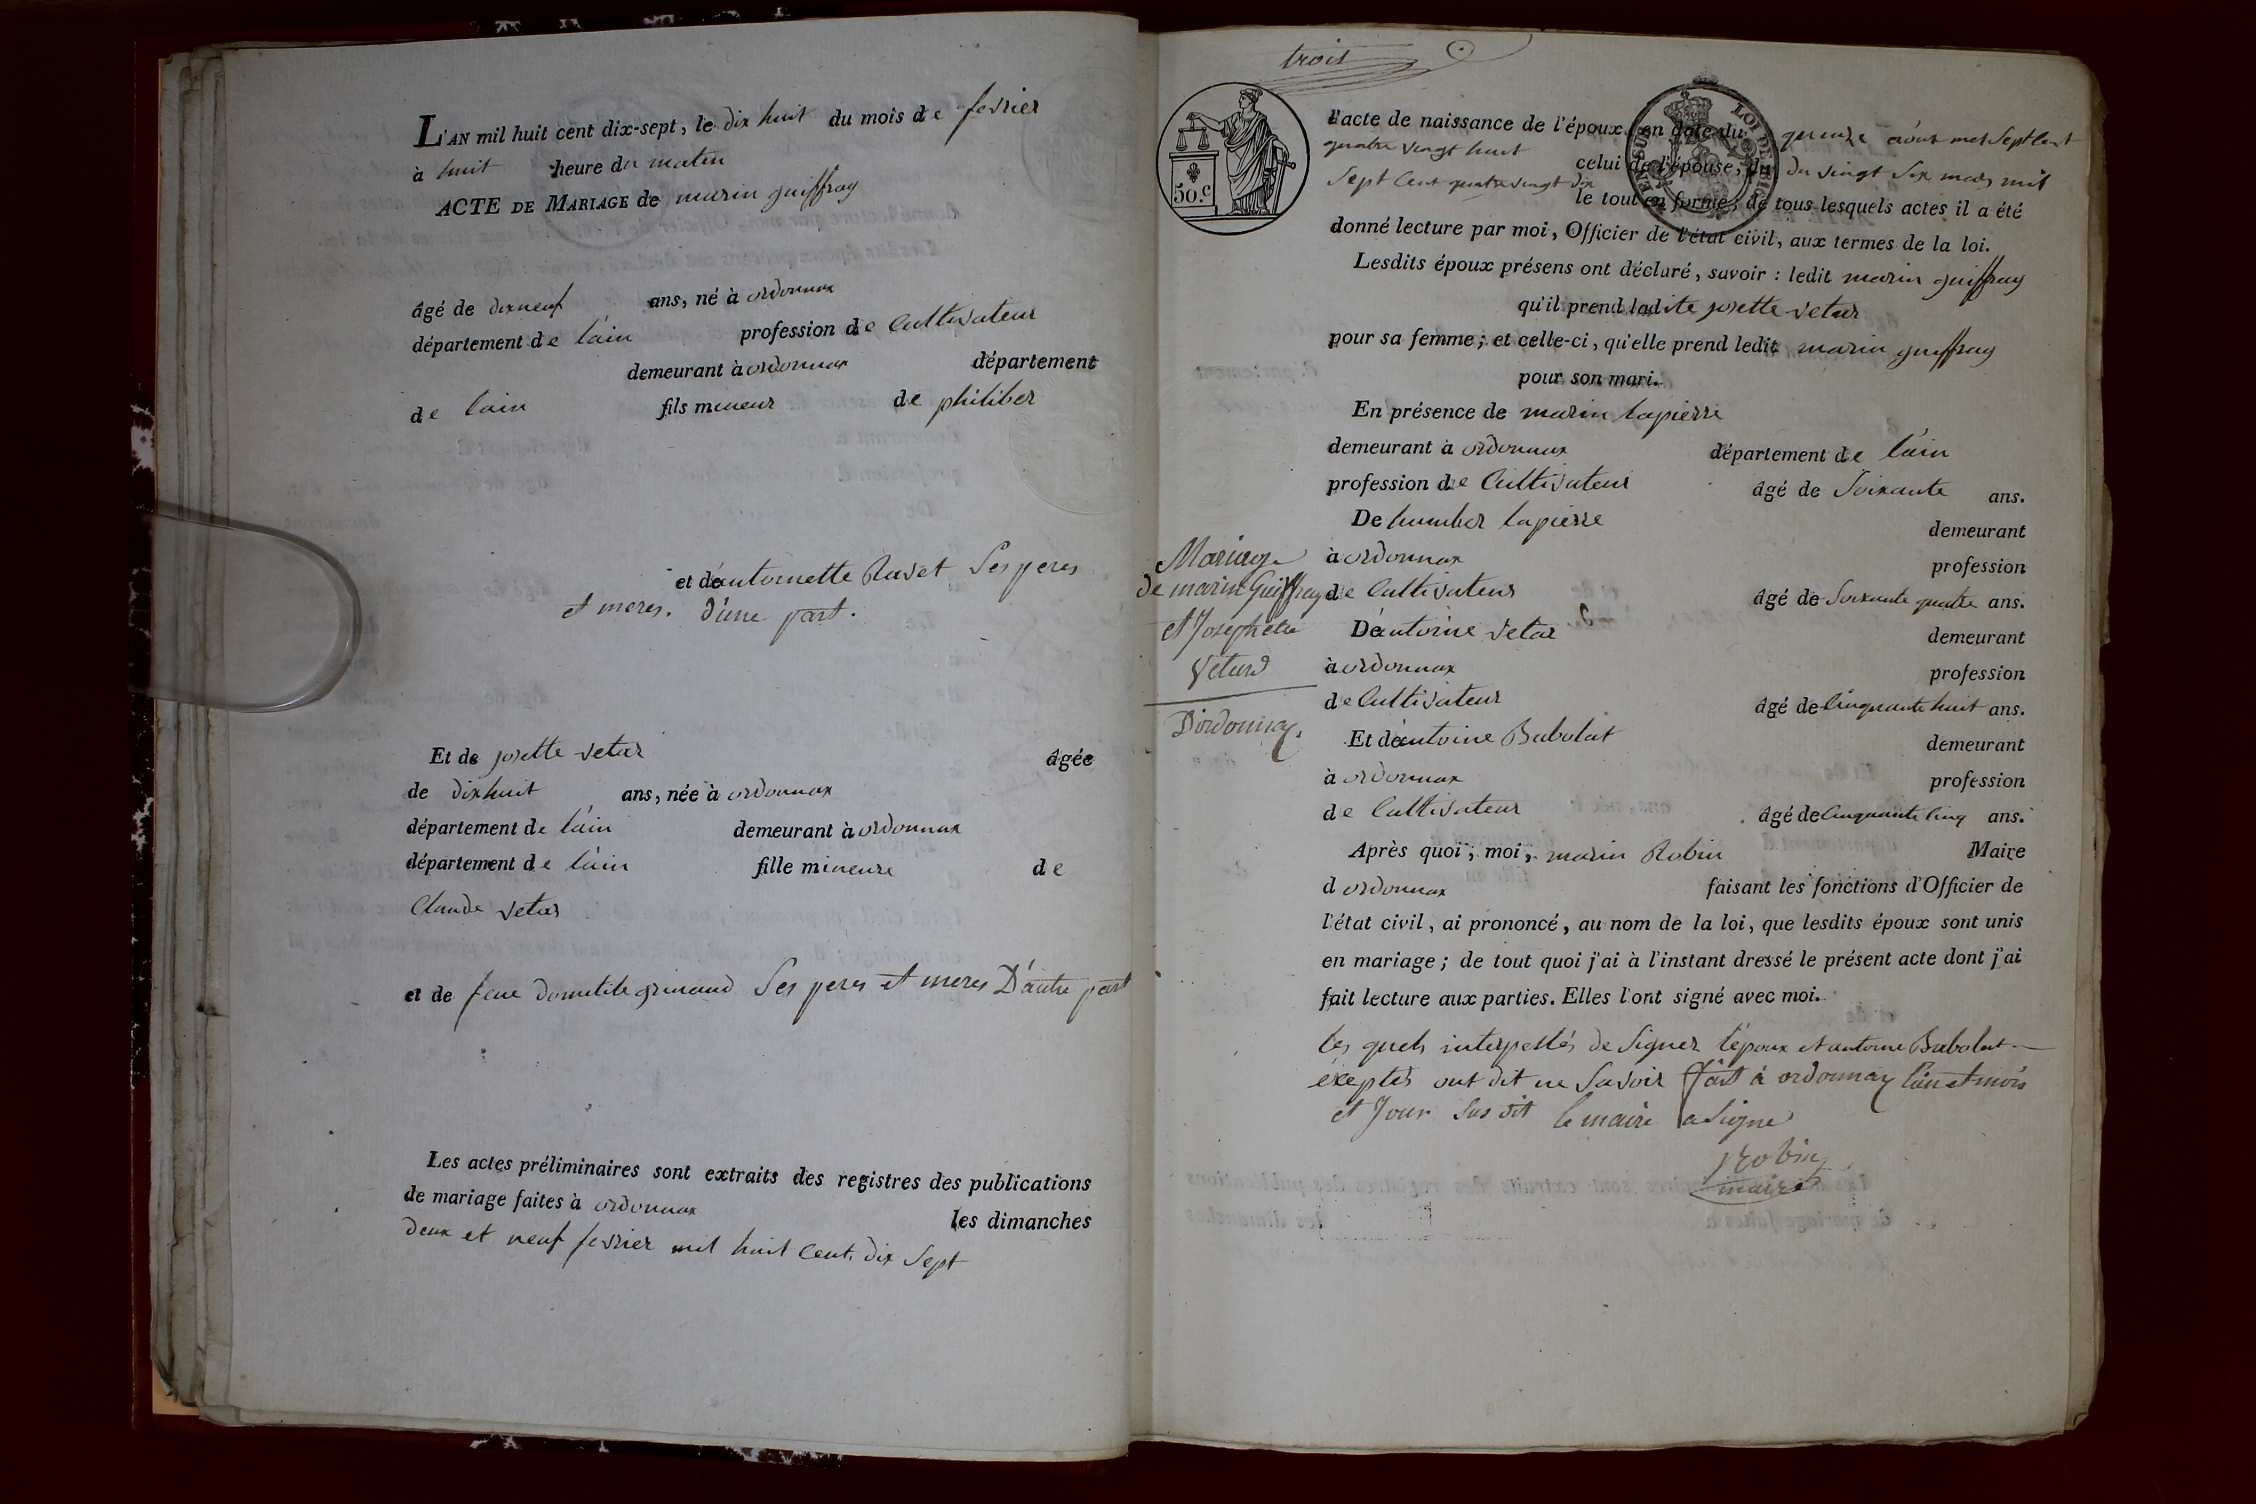 L'AN mil huit cent dix-sept, le dix huit du mois de fevrier
à huit heure du matin
ACTE DE MARIAGE de marin guiffray
âgé de dixneuf ans, né à ordonnax
département de l'ain profession de Cultivateur
demeurant à ordonnax département
de lain fils mineur de philiber
et d'antoinette Ravet Ses peres
et meres. d'une part.
Et de josette vetar âgée
de dixhuit ans, née à ordonnax
département de l'ain demeurant à ordonnax
département de l'ain fille mineure de
Claude vetar
et de feue domitile grinand Ses peres et meres D'autre part
Les actes préliminaires sont extraits des registres des publications
de mariage faites à ordonnax les dimanches
deux et neuf fevrier mil huit Cent dix Sept
trois
50.c
LOI DE
l'acte de naissance de l'époux, en date du quinze août mil Sept Cent
quatre vingt huit celui de l'épouse, du du vingt Six mars mil
Sept Cent quatre vingt dix le tout en forme; de tous lesquels actes il a été
donné lecture par moi, Officier de l'état civil, aux termes de la loi.
Lesdits époux présens ont déclaré, savoir : ledit marin guiffray
qu'il prend ladite josette vetar
pour sa femme; et celle-ci, qu'elle prend ledit marin guiffray
pour son mari.
En présence de marin lapierre
demeurant à ordonnax département de l'ain
profession de Cultivateur âgé de Soixante ans.
De humber lapierre demeurant
à ordonnax profession
de Cultivateur âgé de Soixante quatre ans.
D'antoine vetar demeurant
à ordonnax profession
de Cultivateur âgé de Cinquante huit ans.
Et d'antoine Babolat demeurant
à ordonnax profession
de Cultivateur âgé de Cinquante Cinq ans.
Mariage
de marin Guiffray
et Josephete
Vetard
D'ordonnax.
Après quoi, moi, marin Robin Maire
d ordonnax faisant les fonctions d'Officier de
l'état civil, ai prononcé, au nom de la loi, que lesdits époux sont unis
en mariage; de tout quoi j'ai à l'instant dressé le présent acte dont j'ai
fait lecture aux parties. Elles l'ont signé avec moi.
les quels interpellés de Signer l'époux et antoine Babolat
exeptés ont dit ne Savoir fait à ordonnax l'an et mois
et Jour Sus dit le maire a Signé
Robin
maire